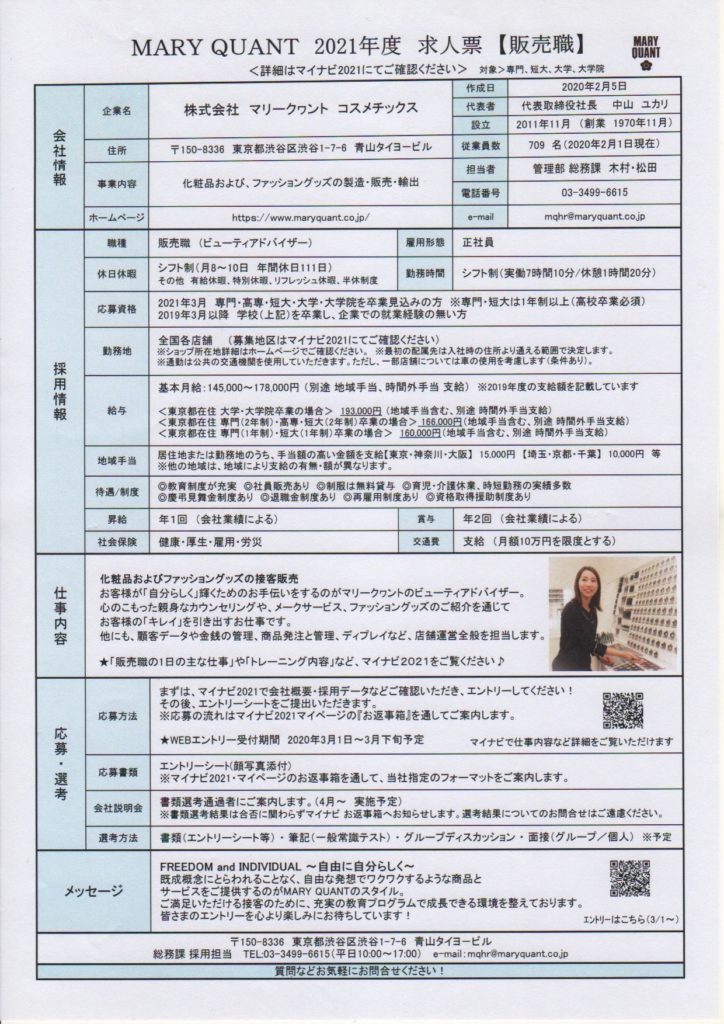 MARY QUANT 2021年度 求人票 【販売職】
MARY
QUANT
＜詳細はマイナビ2021にてご確認ください＞ 対象＞専門、短大、大学、大学院
会社情報
企業名
株式会社 マリークヮント コスメチックス
作成日
2020年2月5日
代表者
代表取締役社長 中山 ユカリ
設立
2011年11月 （創業 1970年11月）
住所
〒150-8336 東京都渋谷区渋谷1-7-6 青山タイヨービル
従業員数
709 名（2020年2月1日現在）
事業内容
化粧品および、ファッショングッズの製造・販売・輸出
担当者
管理部 総務課 木村・松田
電話番号
03-3499-6615
ホームページ
https://www.maryquant.co.jp/
e-mail
mqhr@maryquant.co.jp
採用情報
職種
販売職 （ビューティアドバイザー）
雇用形態
正社員
休日休暇
シフト制（月8～10日 年間休日111日）
その他 有給休暇、特別休暇、リフレッシュ休暇、半休制度
勤務時間
シフト制（実働7時間10分/休憩1時間20分）
応募資格
2021年3月 専門・高専・短大・大学・大学院を卒業見込みの方 ※専門・短大は1年制以上（高校卒業必須）
2019年3月以降 学校（上記）を卒業し、企業での就業経験の無い方
勤務地
全国各店舗 （募集地区はマイナビ2021にてご確認ください）
※ショップ所在地詳細はホームページでご確認ください。 ※最初の配属先は入社時の住所より通える範囲で決定します。
※通勤は公共の交通機関を使用していただきます。ただし、一部店舗については車の使用を考慮します（条件あり）。
給与
基本月給：145,000～178,000円 （別途 地域手当、時間外手当 支給） ※2019年度の支給額を記載しています
＜東京都在住 大学・大学院卒業の場合＞ 193,000円 （地域手当含む、別途 時間外手当支給）
＜東京都在住 専門（2年制）・高専・短大（2年制）卒業の場合＞ 166,000円（地域手当含む、別途 時間外手当支給）
＜東京都在住 専門（1年制）・短大（1年制）卒業の場合＞ 160,000円（地域手当含む、別途 時間外手当支給）
地域手当
居住地または勤務地のうち、手当額の高い金額を支給【東京・神奈川・大阪】 15,000円 【埼玉・京都・千葉】 10,000円 等
※他の地域は、地域により支給の有無・額が異なります。
待遇/制度
◎教育制度が充実 ◎社員販売あり ◎制服は無料貸与 ◎育児・介護休業、時短勤務の実績多数
◎慶弔見舞金制度あり ◎退職金制度あり ◎再雇用制度あり ◎資格取得援助制度あり
昇給
年1回 （会社業績による）
賞与
年2回 （会社業績による）
社会保険
健康・厚生・雇用・労災
交通費
支給 （月額10万円を限度とする）
仕事内容
化粧品およびファッショングッズの接客販売
お客様が「自分らしく」輝くためのお手伝いをするのがマリークヮントのビューティアドバイザー。
心のこもった親身なカウンセリングや、メークサービス、ファッショングッズのご紹介を通じて
お客様の「キレイ」を引き出すお仕事です。
他にも、顧客データや金銭の管理、商品発注と管理、ディプレイなど、店舗運営全般を担当します。
★「販売職の1日の主な仕事」や「トレーニング内容」など、マイナビ2021をご覧ください♪
応募・選考
応募方法
まずは、マイナビ2021で会社概要・採用データなどご確認いただき、エントリーしてください！
その後、エントリーシートをご提出いただきます。
※応募の流れはマイナビ2021マイページの『お返事箱』を通してご案内します。
★WEBエントリー受付期間 2020年3月1日～3月下旬予定
マイナビで仕事内容など詳細をご覧いただけます
応募書類
エントリーシート(顔写真添付)
※マイナビ2021・マイページのお返事箱を通して、当社指定のフォーマットをご案内します。
会社説明会
書類選考通過者にご案内します。（4月～ 実施予定）
※書類選考結果は合否に関わらずマイナビ お返事箱へお知らせします。選考結果についてのお問合せはご遠慮ください。
選考方法
書類（エントリーシート等）・筆記（一般常識テスト）・グループディスカッション・面接（グループ／個人） ※予定
メッセージ
FREEDOM and INDIVIDUAL ～自由に自分らしく～
既成概念にとらわれることなく、自由な発想でワクワクするような商品と
サービスをご提供するのがMARY QUANTのスタイル。
ご満足いただける接客のために、充実の教育プログラムで成長できる環境を整えております。
皆さまのエントリーを心より楽しみにお待ちしています！
エントリーはこちら（3/1～）
〒150-8336 東京都渋谷区渋谷1-7-6 青山タイヨービル
総務課 採用担当 TEL:03-3499-6615（平日10:00～17:00） e-mail:mqhr@maryquant.co.jp
質問などお気軽にお問合せください！